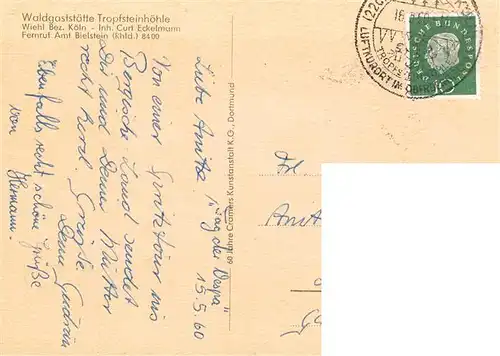 Waldgaststätte Tropfsteinhöhle
Wiehl Bez. Köln - Inh. Curt Eckelmann
Fernruf Amt Bielstein (Rhld.) 8400
Liebe Anita. "Tag der Vespa"
15.5.60
Von einer Spritztour ins
Bergische Land sendet
Dir und Deiner Mutter
recht herzl. Grüsse
Deine Gudrun
Ebenfalls recht schöne Grüße
von
Hermann.
60 Jahre Cramers Kunstanstalt K.G., Dortmund
LUFTKURORT IM OBERB
DEUTSCHE BUNDESPOST